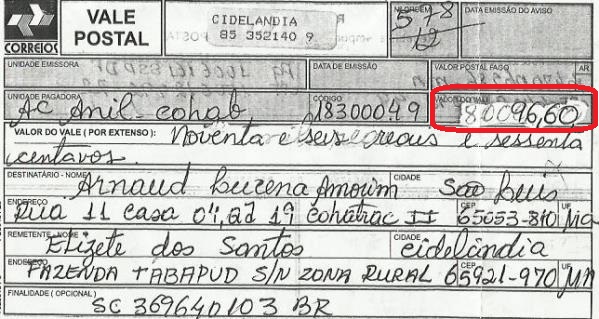 CORREIOS
VALE POSTAL
CIDELANDIA
85 352140 9
NÚMERO 578/12
DATA EMISSÃO DO AVISO
UNIDADE EMISSORA DATA DE EMISSÃO VALOR POSTAL PAGO AR
UNIDADE PAGADORA CÓDIGO VALOR DO VALE
AC Anil-cohab 18300049 80096,60
VALOR DO VALE ( POR EXTENSO ): Noventa e seis reais e sessenta
centavos.
DESTINATÁRIO - NOME CIDADE
Arnaud Lucena Amorim São Luis
ENDEREÇO CEP UF
Rua 11 casa 04, ad 19 cohatrac II 65053-840 Ma
REMETENTE - NOME CIDADE
Elizete dos Santos cidelândia
ENDEREÇO CEP UF
FAZENDA TABAPUD S/N ZONA RURAL 65921-970 MA
FINALIDADE ( OPCIONAL )
SC 369640103 BR